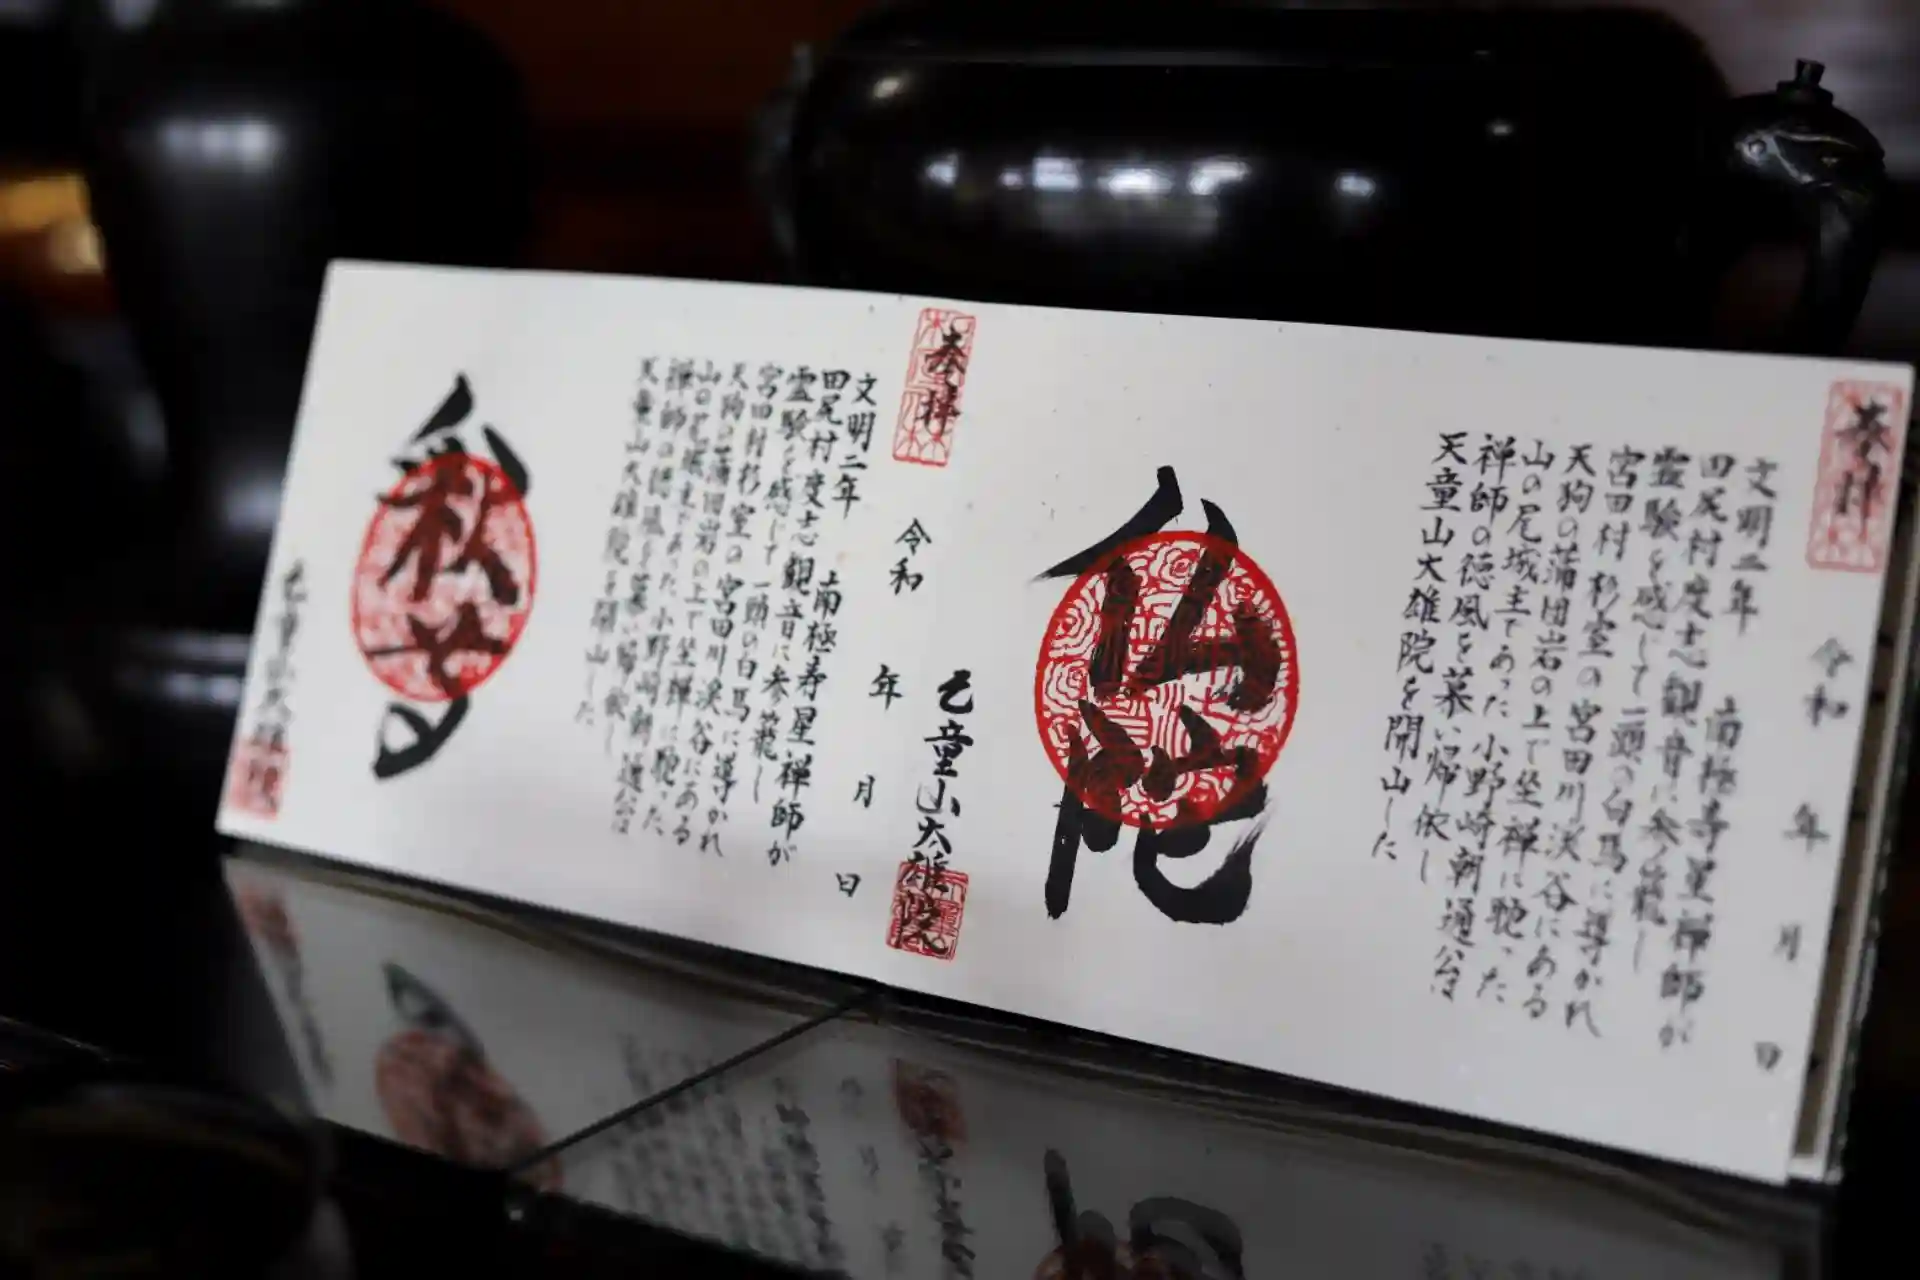 奉拝
令和 年 月 日
文明二年 南極寿星禅師が
田尻村度志観音に参籠し
霊験を感じて一頭の白馬に導かれ
宮田村杉室の宮田川渓谷にある
天狗の蒲団岩の上で坐禅に勉った
山の尼城主であった小野崎朝通公は
禅師の徳風を慕い帰依し
天童山大雄院を開山した
天童山大雄院
奉拝
令和 年 月 日
文明二年 南極寿星禅師が
田尻村度志観音に参籠し
霊験を感じて一頭の白馬に導かれ
宮田村杉室の宮田川渓谷にある
天狗の蒲団岩の上で坐禅に勉った
山の尼城主であった小野崎朝通公は
禅師の徳風を慕い帰依し
天童山大雄院を開山した
天童山大雄院